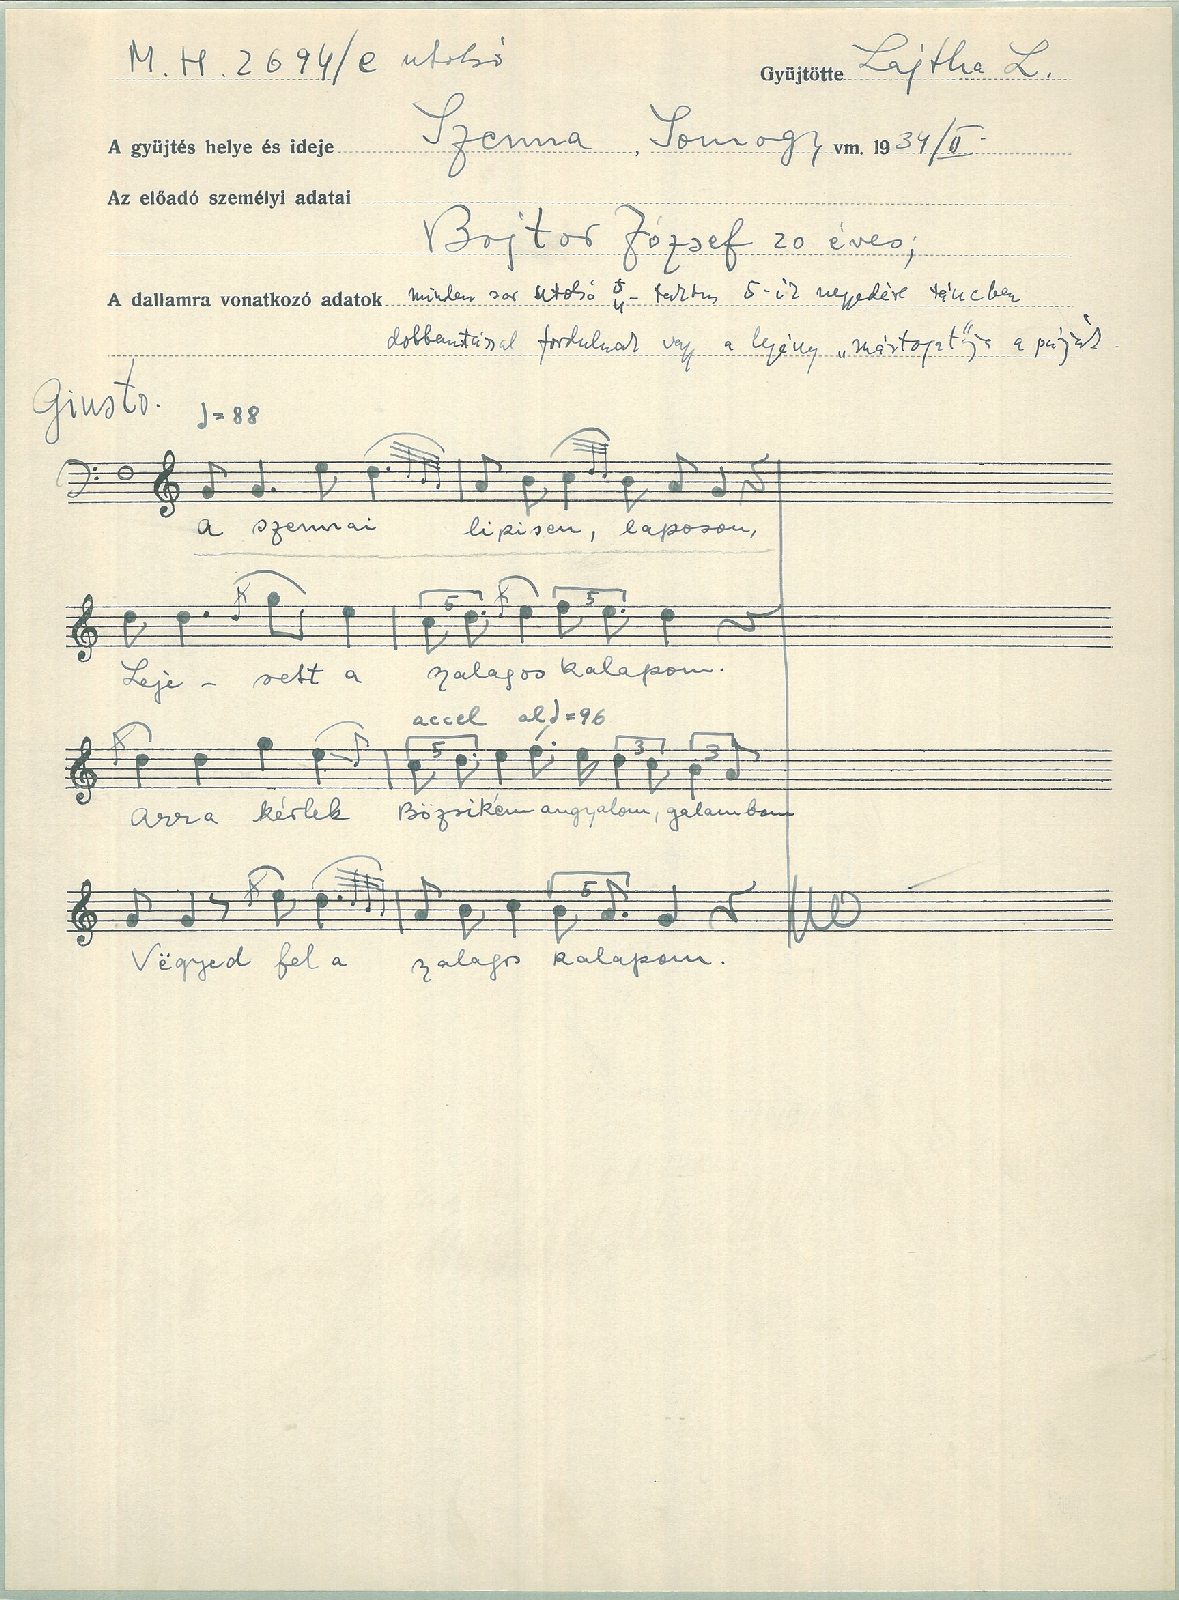 M. H. 2694/e utolsó
Gyüjtötte Lajtha L.
A gyüjtés helye és ideje Szenna, Somogy vm. 1934/II.
Az előadó személyi adatai
Bojtor József 20 éves;
A dallamra vonatkozó adatok minden sor utolsó 5/4- 5-ik negyedére táncban
dobbantással fordulnak vagy a legény „mártogat"ja a párját
Giusto. ♩=88
A szennai lipisen, laposon,
Leje - sett a zalagos kalapom.
accel al ♩=96
5 5
Arra kérlek Bözsikém angyalom, galambom
5 3 3
Vëgyed fel a zalagos kalapom.
5